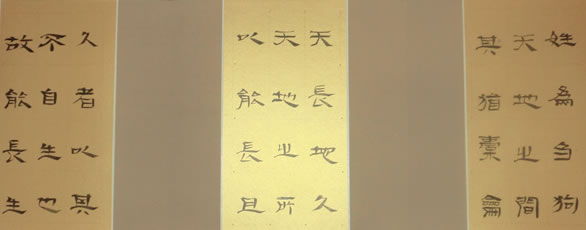 姓為刍狗
天地之間
其猶橐龠
天長地久
天地之所
以能長且
久者以其
不自生也
故能長生